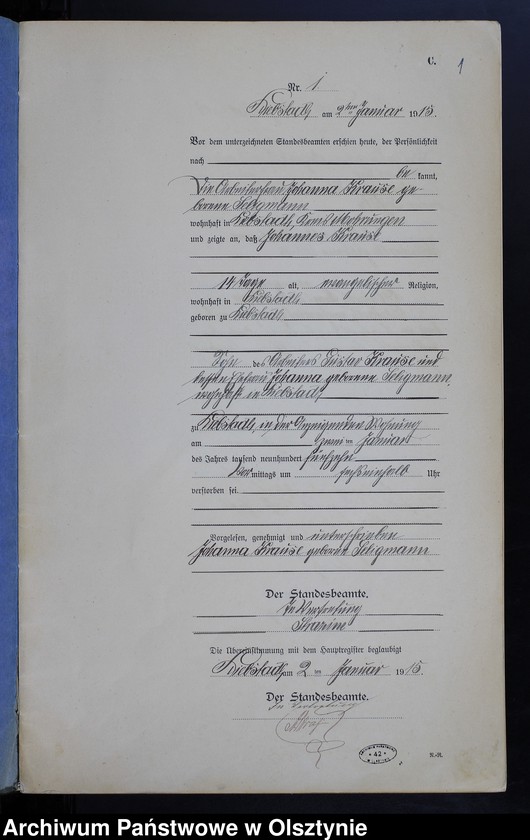 C.
1
Nr. 1
Liebstadt am 2ten Januar 1915.
Vor dem unterzeichneten Standesbeamten erschien heute, der Persönlichkeit
nach
be kannt,
die Arbeiterfrau Johanna Krause ge
borene Seligmann
wohnhaft in Liebstadt, Kreis Mohrungen
und zeigte an, daß Johannes Krause
14 Tage alt, evangelischer Religion,
wohnhaft in Liebstadt
geboren zu Liebstadt
Sohn des Arbeiters Gustav Krause und
dessen Ehefrau Johanna geborene Seligmann,
wohnhaft in Liebstadt
zu Liebstadt, in der Anzeigenden Wohnung
am zwei ten Januar
des Jahres tausend neunhundert fünfzehn
Vor mittags um sechseinhalb Uhr
verstorben sei.
Vorgelesen, genehmigt und unterschrieben
Johanna Krause geborene Seligmann
Der Standesbeamte.
In Vertretung
Die Übereinstimmung mit dem Hauptregister beglaubigt
Liebstadt, am 2 ten Januar 1915.
Der Standesbeamte.
In Vertretung
42
S.-R.
Archiwum Państwowe w Olsztynie